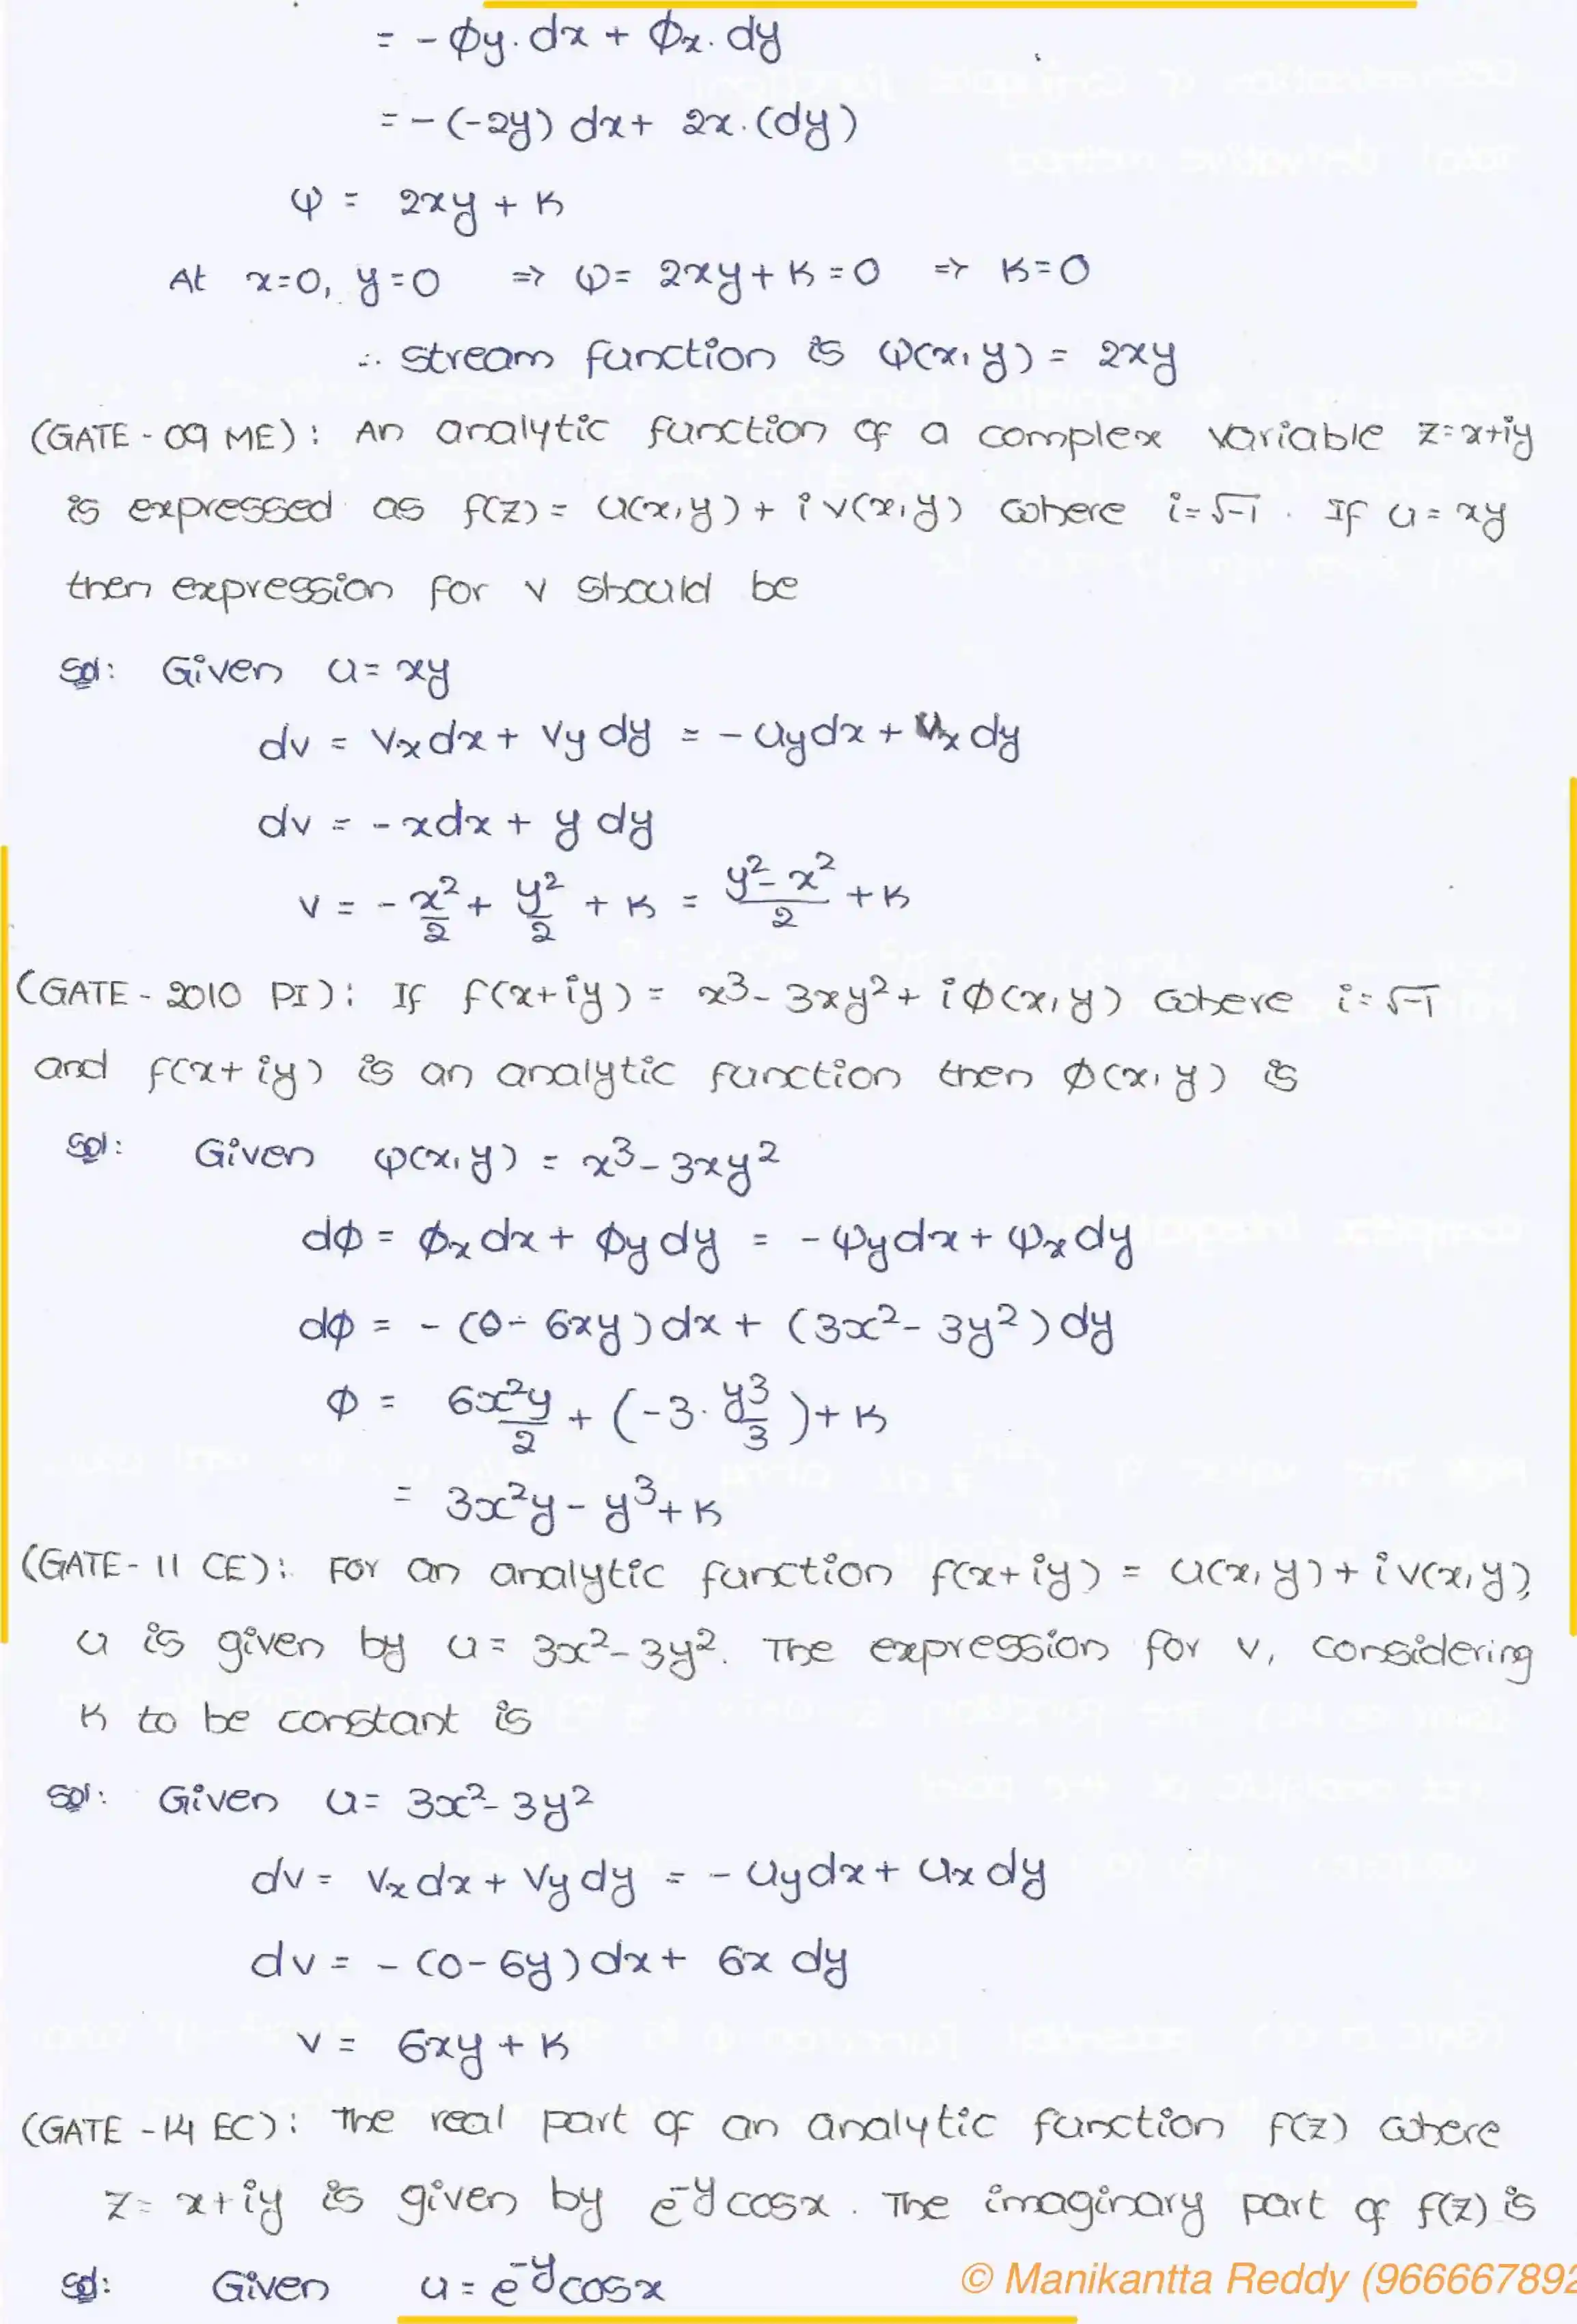 = - ϕy. dx + ϕx. dy
= - (-2y) dx + 2x. (dy)
ψ = 2xy + K
At x=0, y=0 ⇒ ψ = 2xy + K = 0 ⇒ K=0
∴ stream function is ψ(x,y) = 2xy
(GATE - 09 ME): An analytic function of a complex variable z=x+iy
is expressed as f(z) = u(x,y) + i v(x,y) where i=√-1. If u = xy
then expression for v should be
Sol: Given u = xy
dv = Vx dx + Vy dy = - Uy dx + Ux dy
dv = - x dx + y dy
v = - x²/2 + y²/2 + K = (y² - x²)/2 + K
(GATE - 2010 PI): If f(x+iy) = x³ - 3xy² + i ϕ(x,y) where i=√-1
and f(x+iy) is an analytic function then ϕ(x,y) is
Sol: Given ψ(x,y) = x³ - 3xy²
dϕ = ϕx dx + ϕy dy = - ψy dx + ψx dy
dϕ = - (0 - 6xy) dx + (3x² - 3y²) dy
ϕ = 6x²y/2 + (-3. y³/3) + K
= 3x²y - y³ + K
(GATE - 11 CE): For an analytic function f(x+iy) = u(x,y) + i v(x,y),
u is given by u = 3x² - 3y². The expression for v, considering
K to be constant is
Sol: Given u = 3x² - 3y²
dv = Vx dx + Vy dy = - Uy dx + Ux dy
dv = - (0 - 6y) dx + 6x dy
v = 6xy + K
(GATE - 14 EC): The real part of an analytic function f(z) where
z = x+iy is given by e^-y cosx. The imaginary part of f(z) is
Sol: Given u = e^-y cosx
© Manikantta Reddy (966667892